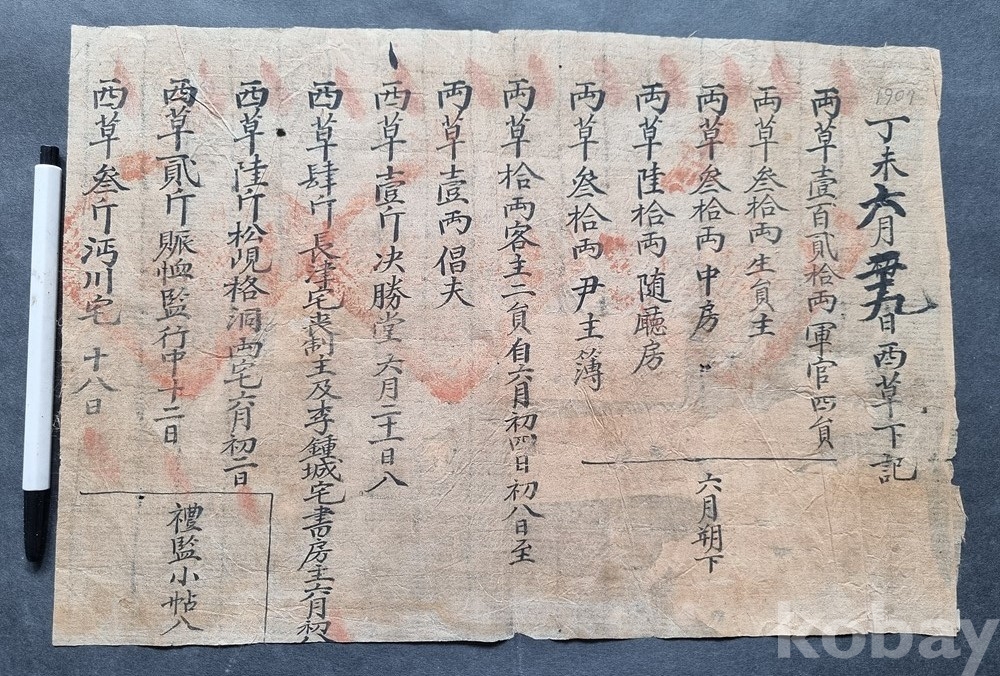 1907
丁未六月卄九日西草下記
両草壹百貳拾両軍官四負
両草叁拾両生負主
両草叁拾両中房
両草陸拾両随廳房
両草叁拾両尹主簿
六月朔下
両草拾両客主二負自六月初四日初八日至
両草壹両倡夫
西草壹斤决勝堂六月二十一日八
西草肆斤長津宅喪制主及李鍾城宅書房主六月初
西草陸斤松峴格洞両宅六月初二日
西草貳斤賑恤監行中十二日
西草叁斤沔川宅 十八日
禮監小帖八
kobay